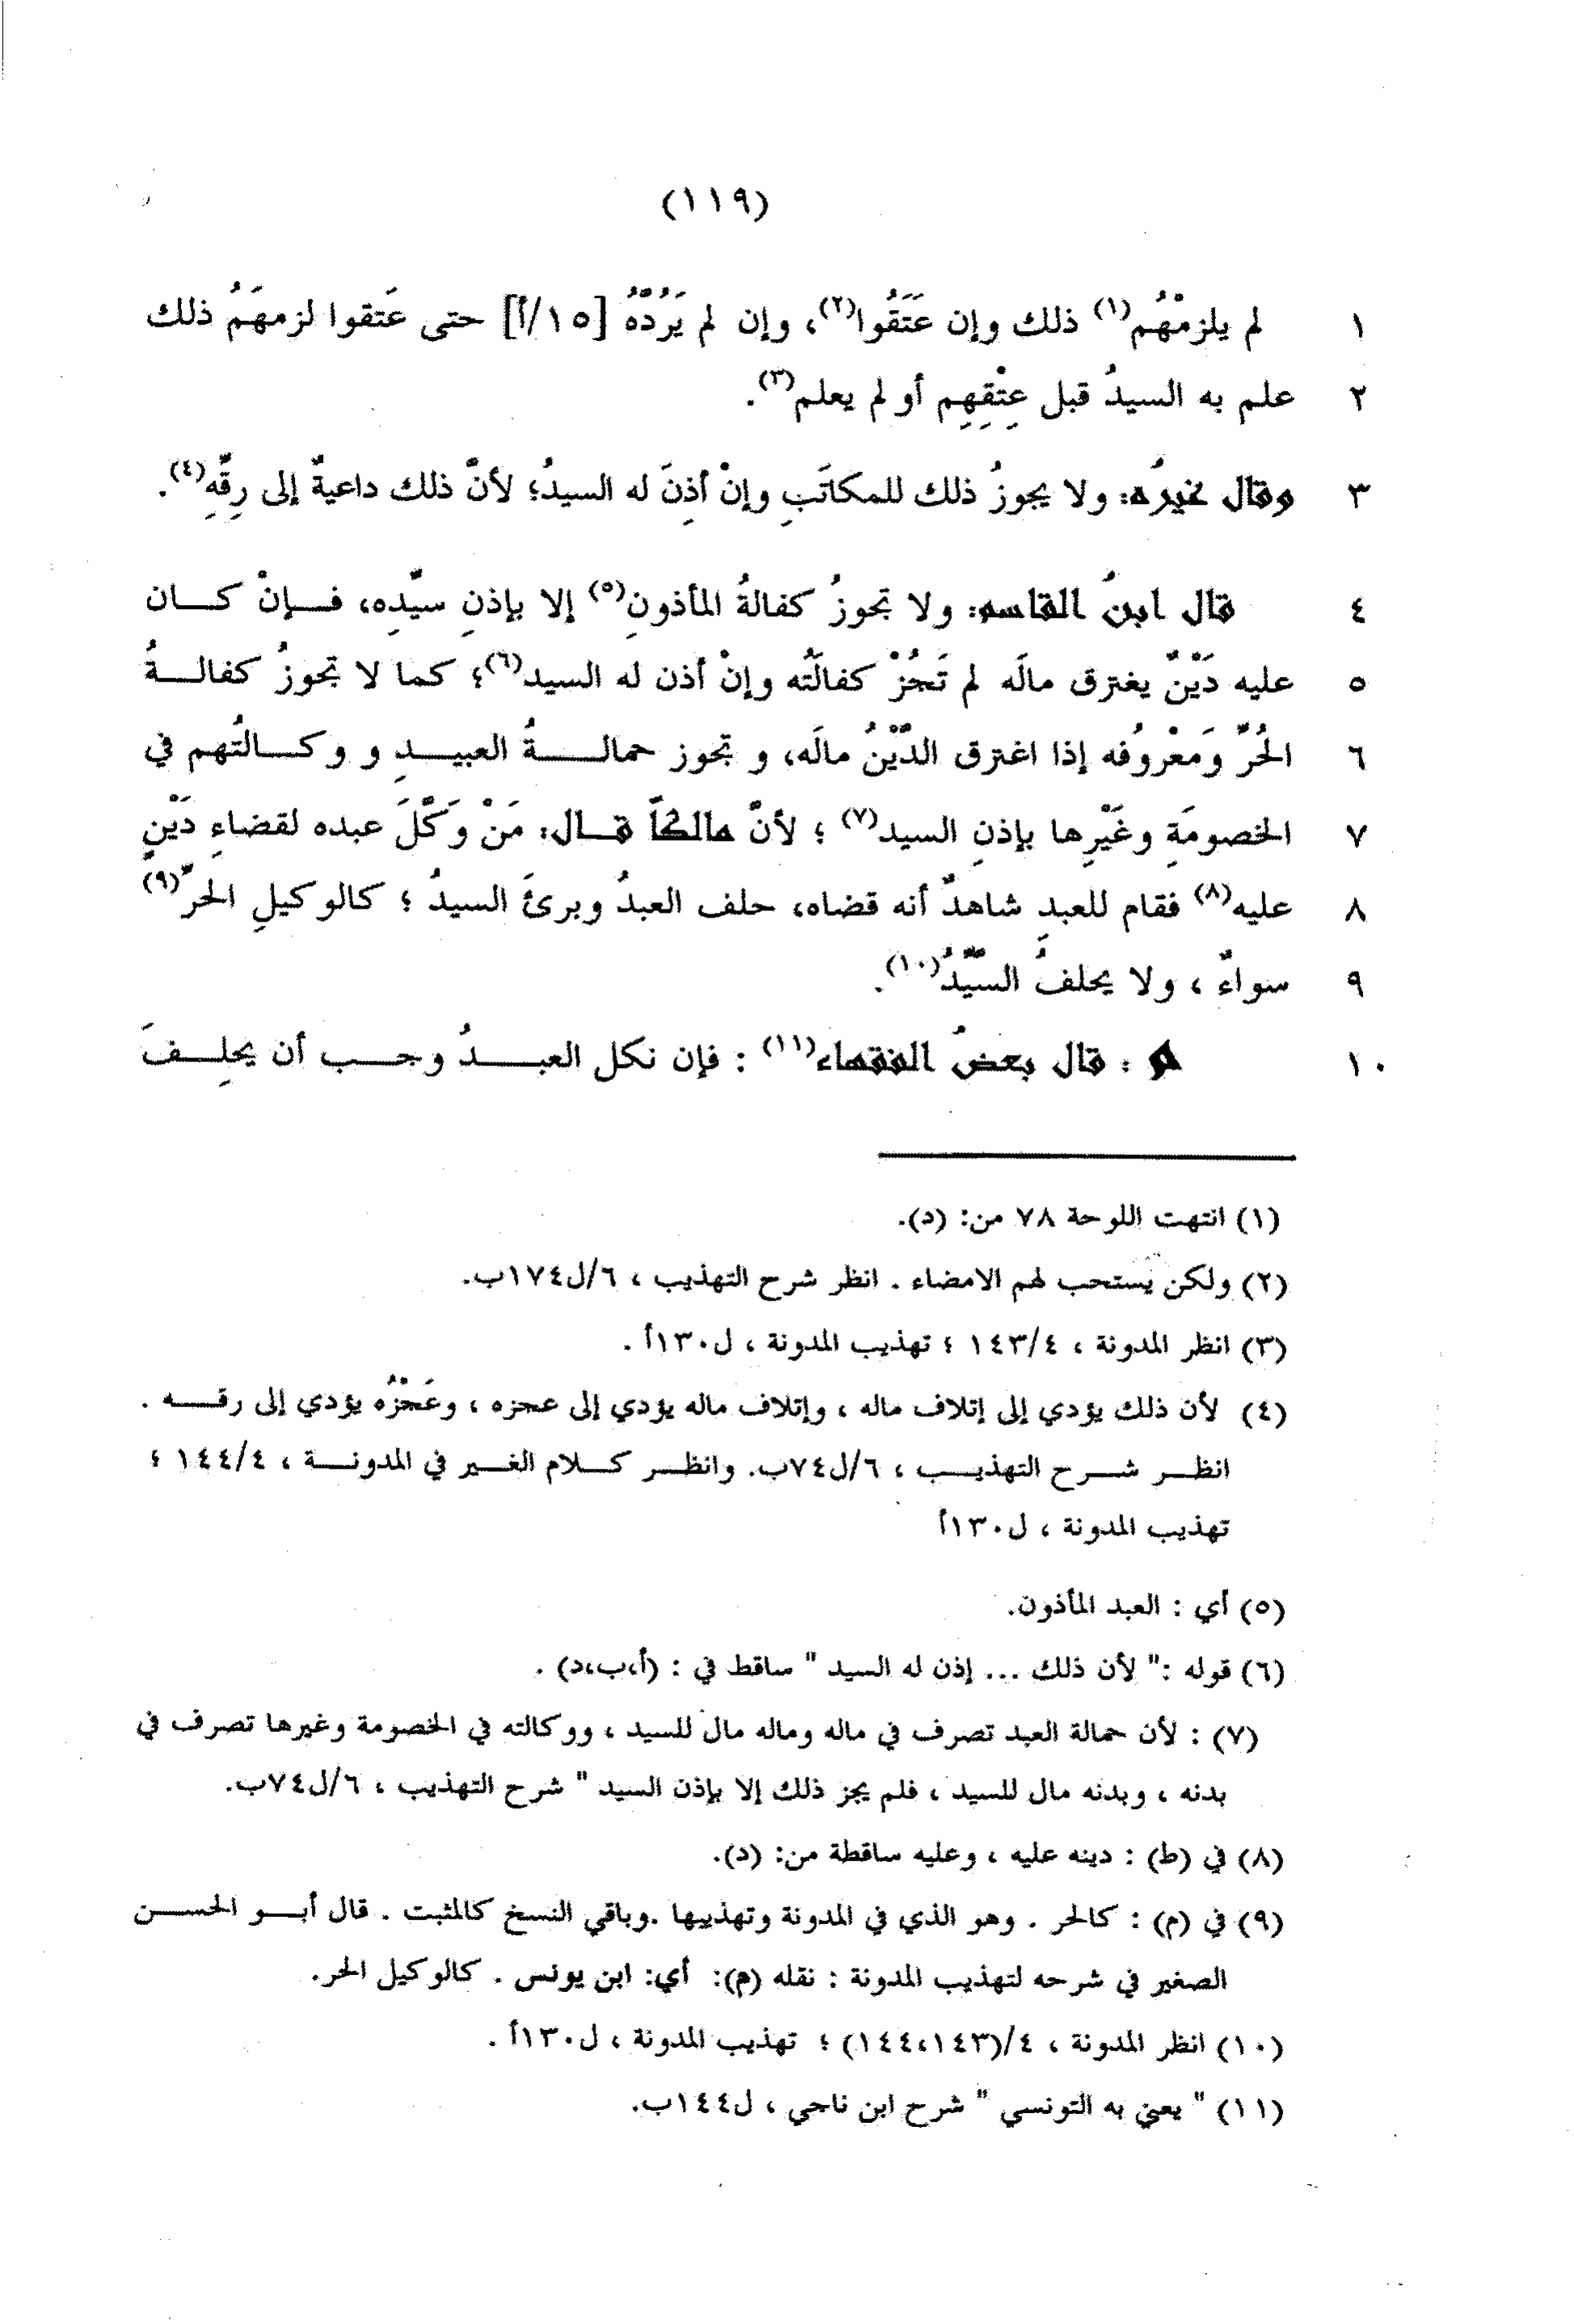 (١١٩)
١ لم يلزمْهُم(١) ذلك وإن عَتَقُوا(٢)، وإن لم يَرُدَّهُ [١٥/أ] حتى عَتقوا لزمهَمُ ذلك
٢ علم به السيدُ قبل عِتْقِهِم أو لم يعلم(٣).
٣ وقال غيرُه: ولا يجوزُ ذلك للمكاتَبِ وإنْ أذِنَ له السيدُ؛ لأنَّ ذلك داعيةٌ إلى رِقِّهِ(٤).
٤ قال ابنُ القاسم: ولا تجوزُ كفالةُ المأذونِ(٥) إلا بإذنِ سيِّدِه، فإنْ كان
٥ عليه دَيْنٌ يغترق مالَه لم تَجُزْ كفالَتُه وإنْ أذن له السيد(٦)؛ كما لا تجوزُ كفالةُ
٦ الحُرِّ وَمَعْرُوُفه إذا اغترق الدَّيْنُ مالَه، و تجوز حمالةُ العبيدِ و وكالتُهم في
٧ الخصومَةِ وغَيْرِها بإذنِ السيد(٧) ؛ لأنَّ مالكاً قال: مَنْ وَكَّلَ عبده لقضاءِ دَيْنٍ
٨ عليه(٨) فقام للعبدِ شاهدٌ أنه قضاه، حلف العبدُ وبرئَ السيدُ ؛ كالوكيلِ الحرِّ(٩)
٩ سواءٌ ، ولا يحلفُ السَّيِّدُ(١٠).
١٠ م : قال بعضُ الفقهاء(١١) : فإن نكل العبدُ وجب أن يحلِفَ
(١) انتهت اللوحة ٧٨ من: (د).
(٢) ولكن يستحب لهم الامضاء . انظر شرح التهذيب ، ٦/ل١٧٤ب.
(٣) انظر المدونة ، ١٤٣/٤ ؛ تهذيب المدونة ، ل١٣٠أ .
(٤) لأن ذلك يؤدي إلى إتلاف ماله ، وإتلاف ماله يؤدي إلى عجزه ، وعَجْزُه يؤدي إلى رقه .
انظر شرح التهذيب ، ٦/ل٧٤ب. وانظر كلام الغير في المدونة ، ١٤٤/٤ ؛
تهذيب المدونة ، ل١٣٠أ
(٥) أي : العبد المأذون.
(٦) قوله :" لأن ذلك ... إذن له السيد " ساقط في : (أ،ب،د) .
(٧) : لأن حمالة العبد تصرف في ماله وماله مال للسيد ، ووكالته في الخصومة وغيرها تصرف في
بدنه ، وبدنه مال للسيد ، فلم يجز ذلك إلا بإذن السيد " شرح التهذيب ، ٦/ل٧٤ب.
(٨) في (ط) : دينه عليه ، وعليه ساقطة من: (د).
(٩) في (م) : كالحر . وهو الذي في المدونة وتهذيبها .وباقي النسخ كالمثبت . قال أبو الحسن
الصغير في شرحه لتهذيب المدونة : نقله (م): أي: ابن يونس . كالوكيل الحر.
(١٠) انظر المدونة ، ٤/(١٤٤،١٤٣) ؛ تهذيب المدونة ، ل١٣٠أ .
(١١) " يعني به التونسي " شرح ابن ناجي ، ل١٤٤ب.